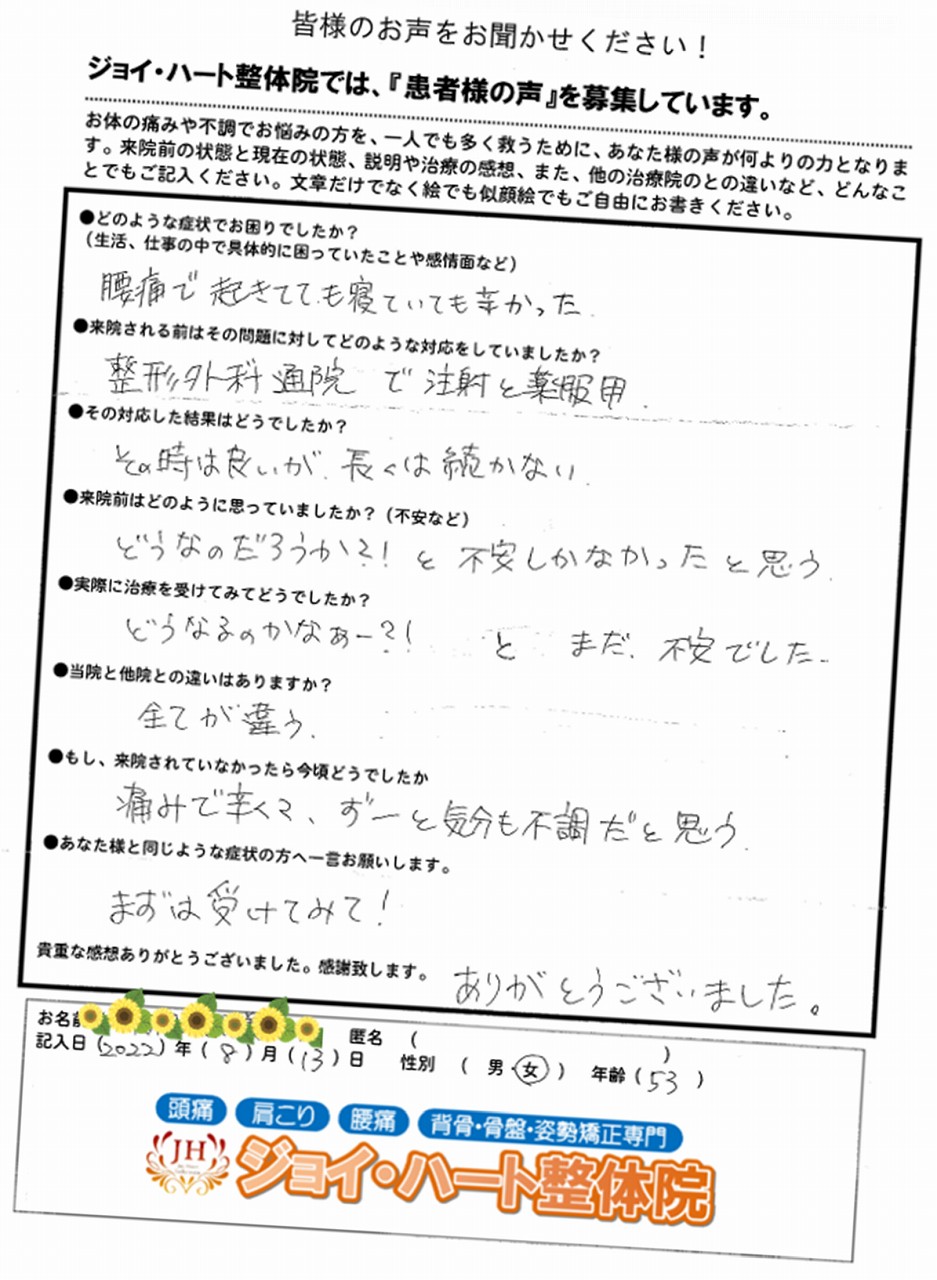 皆様のお声をお聞かせください！
ジョイ・ハート整体院では、『患者様の声』を募集しています。
お体の痛みや不調でお悩みの方を、一人でも多く救うために、あなた様の声が何よりの力となりま
す。来院前の状態と現在の状態、説明や治療の感想、また、他の治療院のとの違いなど、どんなこ
とでもご記入ください。文章だけでなく絵でも似顔絵でもご自由にお書きください。
●どのような症状でお困りでしたか？
（生活、仕事の中で具体的に困っていたことや感情面など）
腰痛で起きてても寝ていても辛かった.
●来院される前はその問題に対してどのような対応をしていましたか？
整形外科通院で注射と薬服用.
●その対応した結果はどうでしたか？
その時は良いが、長くは続かない.
●来院前はどのように思っていましたか？（不安など）
どうなのだろうか?! と 不安しかなかったと思う.
●実際に治療を受けてみてどうでしたか？
どうなるのかなぁー?! と まだ、不安でした.
●当院と他院との違いはありますか？
全てが違う.
●もし、来院されていなかったら今頃どうでしたか
痛みで辛くて、ずーと気分も不調だと思う.
●あなた様と同じような症状の方へ一言お願いします。
まずは受けてみて！
貴重な感想ありがとうございました。感謝致します。 ありがとうございました。
お名前 匿名 （ ）
記入日（2022）年（8）月（13）日 性別 （ 男・女 ） 年齢（53 ）
頭痛 肩こり 腰痛 背骨・骨盤・姿勢矯正専門
JH ジョイ・ハート整体院